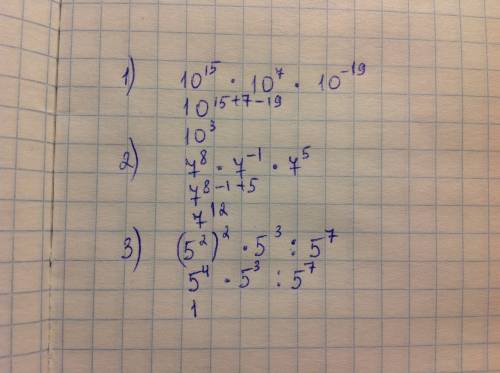 1) 10¹⁵ · 10⁷ · 10⁻¹⁹
10¹⁵⁺⁷⁻¹⁹
10³
2) 7⁸ · 7⁻¹ · 7⁵
7⁸⁻¹⁺⁵
7¹²
3) (5²)² · 5³ : 5⁷
5⁴ · 5³ : 5⁷
1